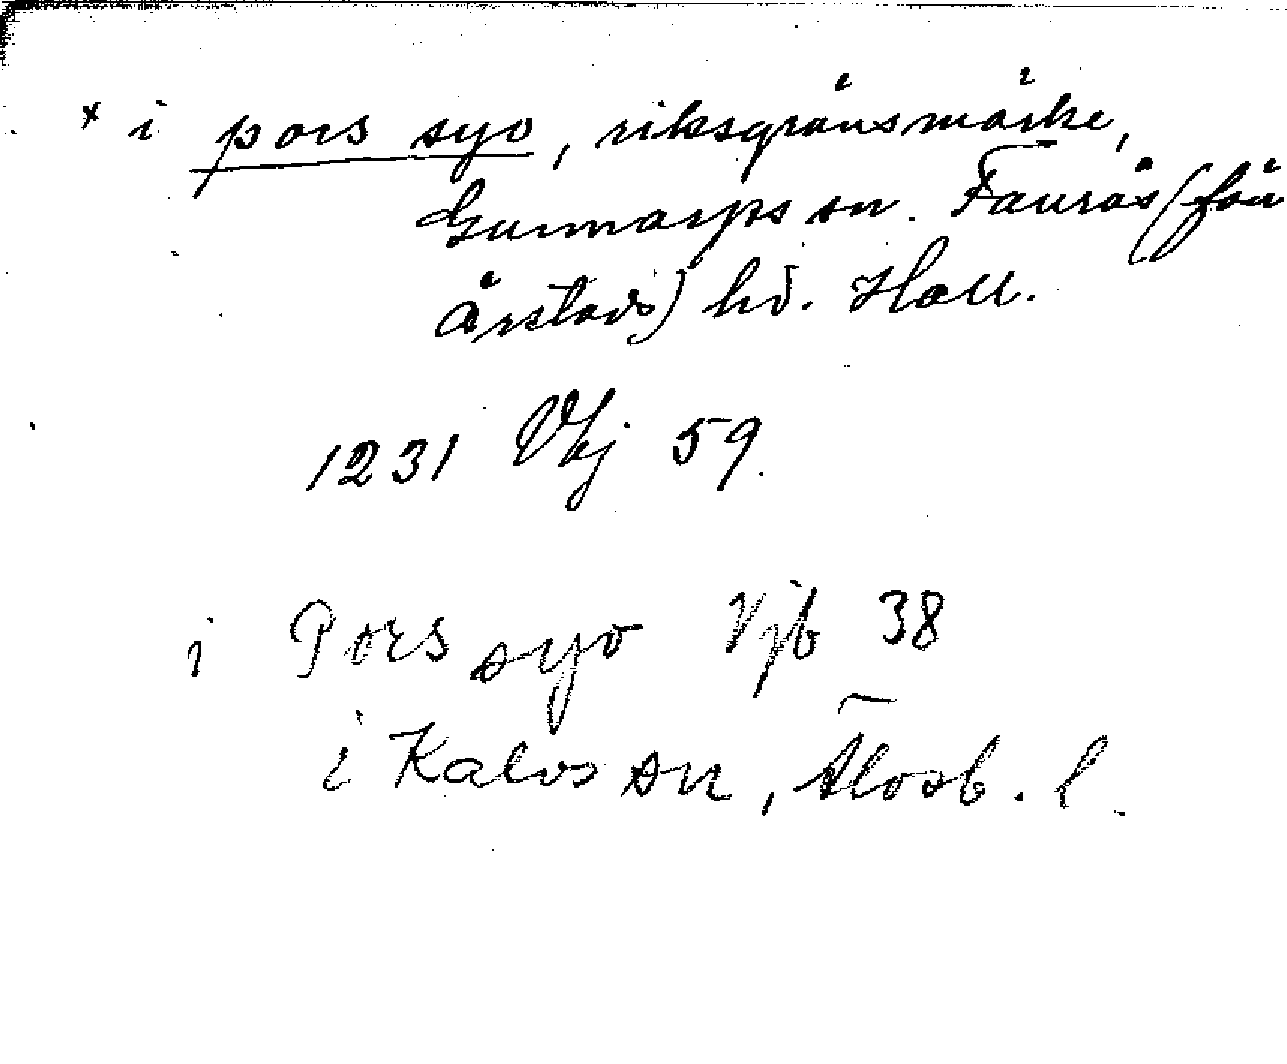 * i pors syo, riksgränsmärke,
Gunnarps sn. Faurås (förr
Årstads) hd. Hall.
1231 Vkj 59.
i Pors syo Vjb 38
i Kalvs sn, Älvsb. l.